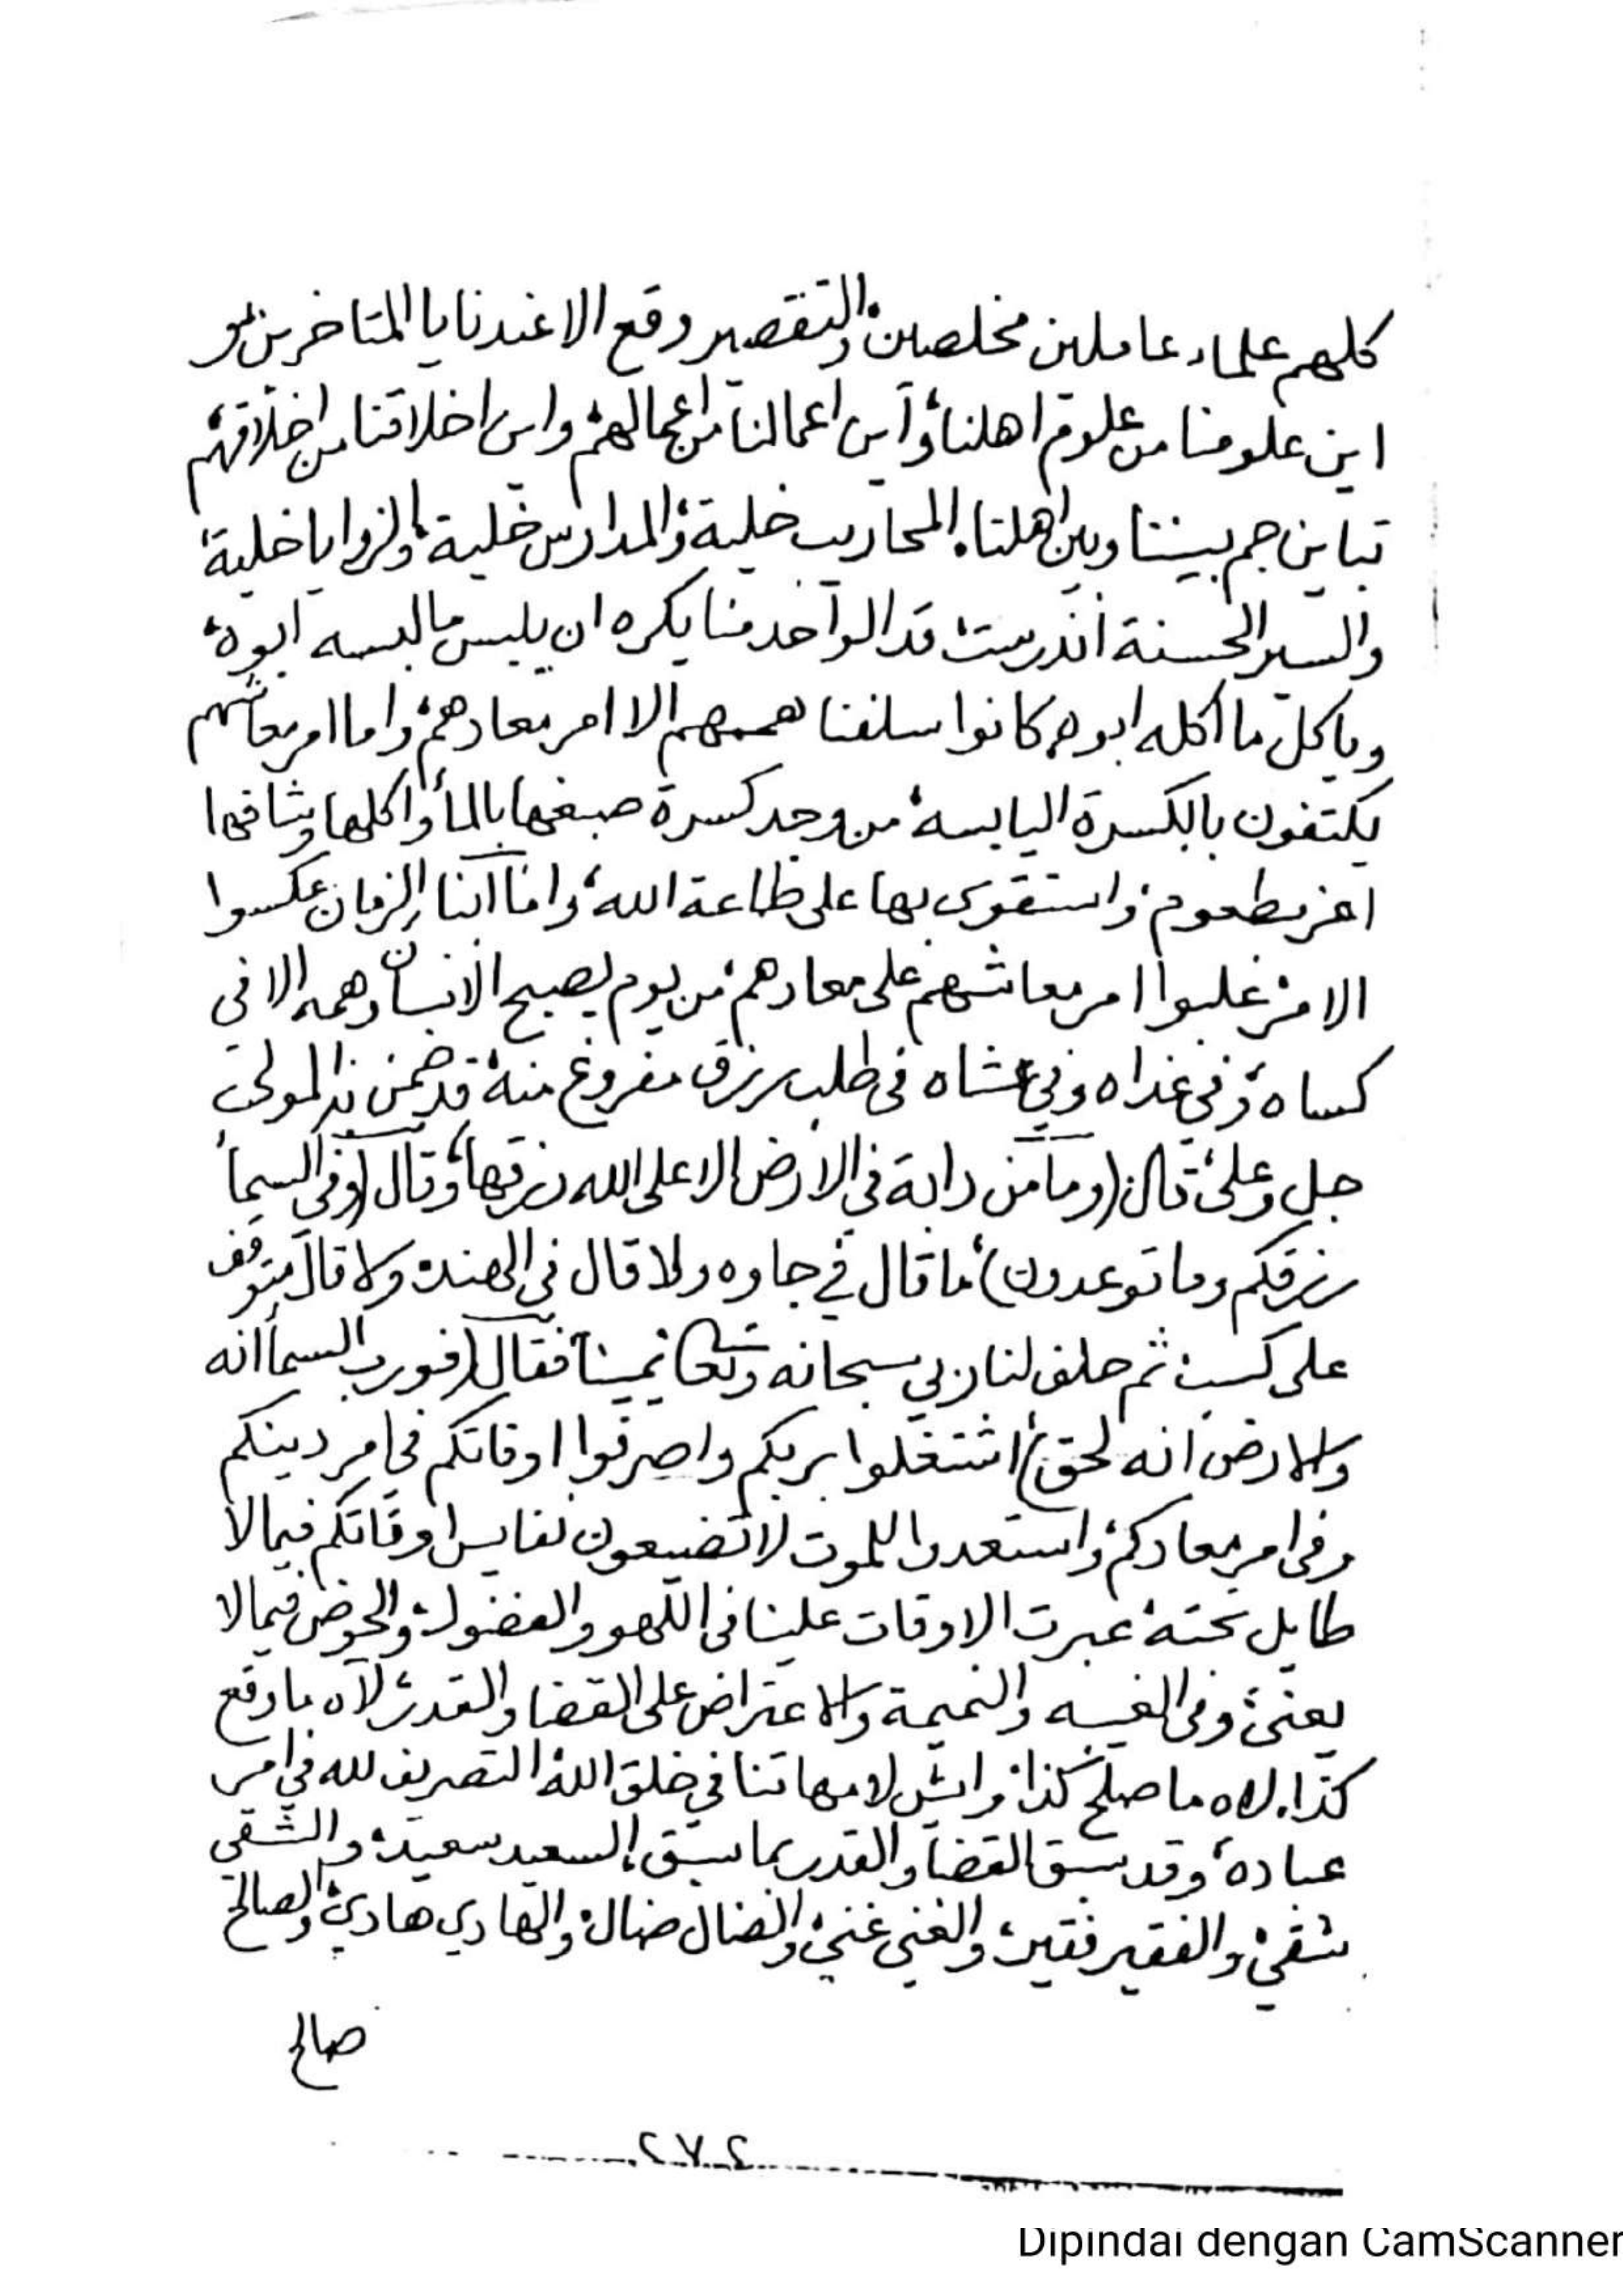 كلهم علماء عاملين مخلصين، والتقصير وقع الا عندنا يا المتاخرين
اين علومنا من علوم اهلنا، وأين اعمالنا من اعمالهم، واين اخلاقنا من اخلاقهم
تباين جم بيننا وبين اهلنا، المحاريب خلية، والمدارس خلية، والزوايا خلية،
والسير الحسنة اندرست، قد الواحد منا يكره ان يلبس ما لبسه ابوه،
وياكل ما اكله ابوه، كانوا سلفنا همهم الا امر معادهم، واما امر معاشهم
يكتفون بالكسرة اليابسه، من وجد كسرة صبغها بالمأ واكلها
واستقوى بها على طاعة الله، واما الزمان عكسوا
الامر، غلبوا امر معاشهم على معادهم، من يوم يصبح الانسان وهمه الا في
كساه، وفي غداه وفي عشاه في طلب رزق مفروغ منه، قد ضمن المولى
جل وعلى، قال: (وما من دابة في الارض الا على الله رزقها، وقال (وفي السمأ
رزقكم وما توعدون)، ما قال في جاوه ولا قال في الهند، ولا قال يتوقف
على كسب، ثم حلف لنا ربي سبحانه وتعالى يمينا فقال (فورب السمأ انه
والارض انه لحق) اشتغلوا بربكم واصرفوا اوقاتكم في امر دينكم
وفي امر معادكم، واستعدوا للموت لا تضيعون نفايس اوقاتكم فيما لا
طايل تحته، عبرت الاوقات علينا في اللهو والفضول، والخوض فيما لا
يعني، وفي الغيبه والنميمة والاعتراض على القضا والقدر، لاه ما وقع
كذا. لاه ما صلح كذا، وايش لامهاتنا في خلق الله، التصريف لله في امر
عباده، وقد سبق القضأ والقدر بما سبق، السعيد سعيد، والشقي
شقي، والفقير فقير، والغني غني، والضال ضال، والهادي هادي، والصالح
صالح
٢٧٢
Dipindai dengan CamScanner